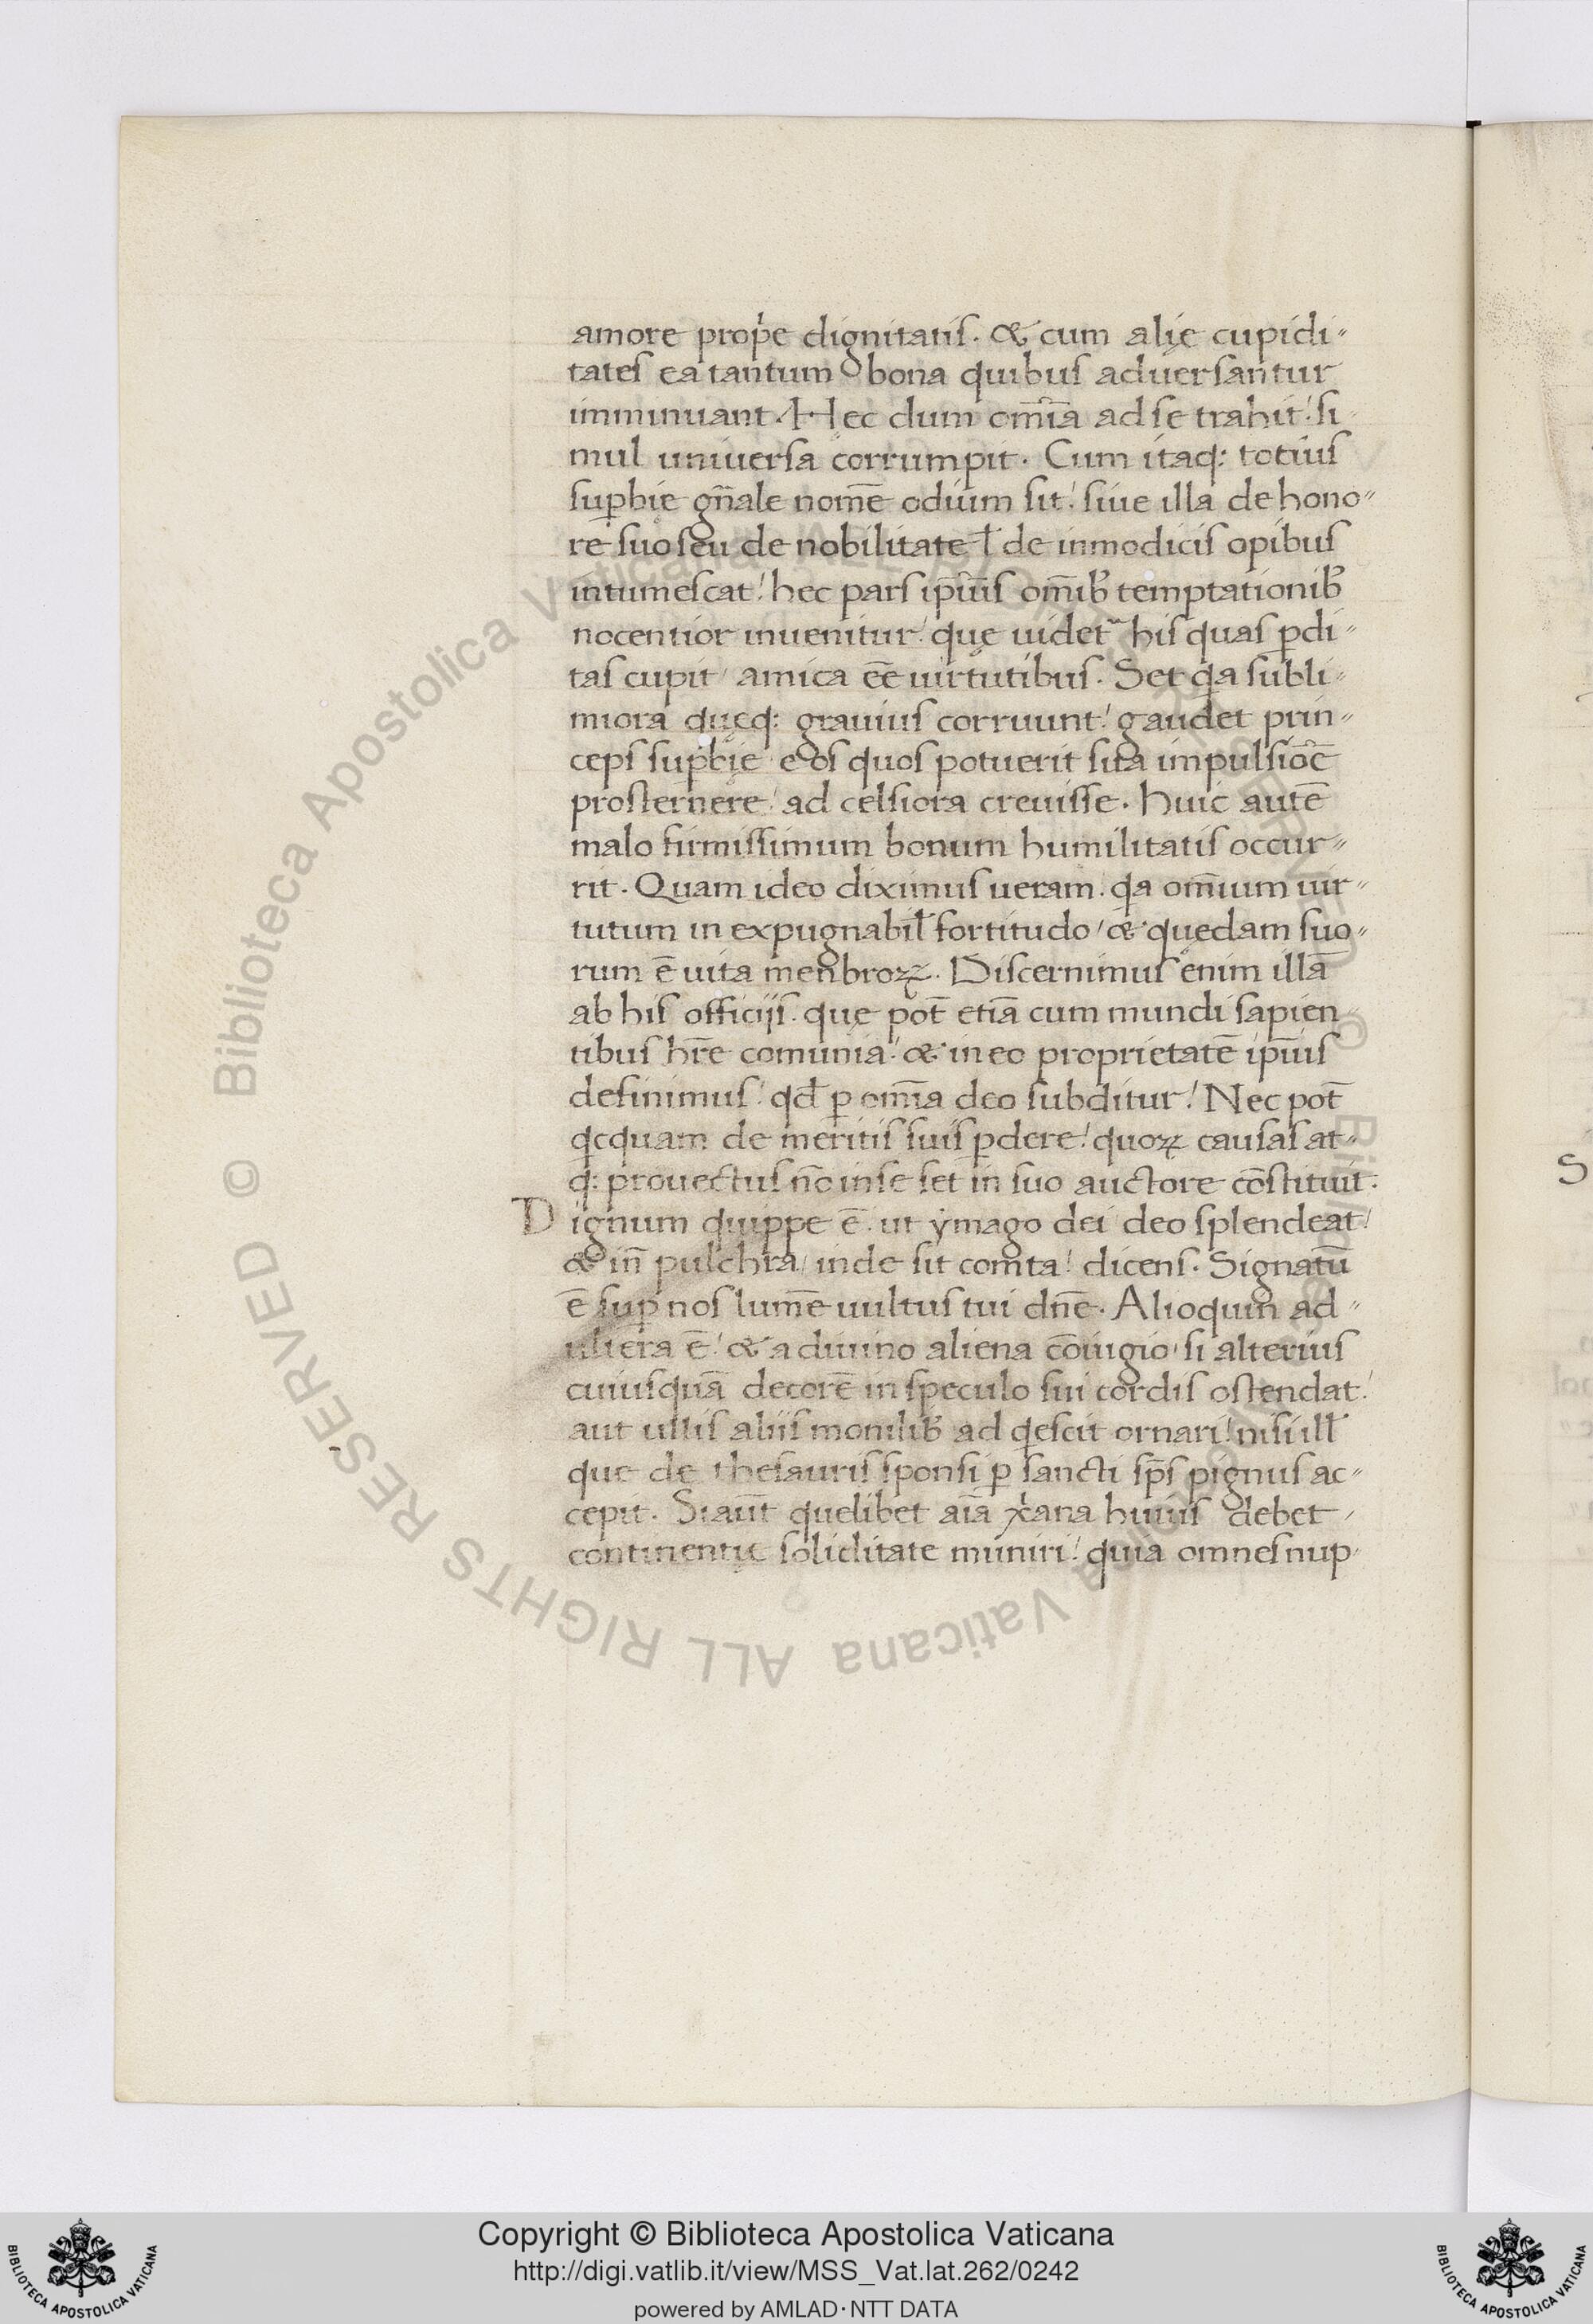 amore prop̍e dignitatis. & cum alię cupidi〃
tates ea tantum bona quibus aduersantur
imminuant. Hec dum om̅ia ad se trahit! si
mul uniuersa corrumpit. Cum itaq: totius
sup̱bię gn̅ale nom̅e odium sit! siue illa de hono〃
re suo seu de nobilitate ł de inmodicis opibus
intumescat! hec pars ip̅ius om̅ib̕ temptationib̕
nocentior inuenitur. quę uidet᷑ his quas p̱di〃
tas cupit / amica ee̅ uirtutibus. Set qa̍ subli〃
miora quęq: grauius corruunt! gaudet prin〃
ceps sup̱bię eos quos potuerit sita impulsio̅e
prosternere! ad celsiora creuisse. huic aute̅
malo firmissimum bonum humilitatis occur〃
rit. Quam ideo diximus ueram. qa̍ om̅ium uir〃
tutum in expugnabil̕ fortitudo / & quędam suo〃
rum e̅ uita menbroꝝ. Discernimus enim illa̅
ab his officiis. quę pot̅ etia̅ cum mundi sapien
tibus hr̅e comunia! & in eo proprietate̅ ip̅ius
definimus! qd̅ p̱ om̅ia deo subditur! Nec pot̅
qc̍quam de meritis suis p̱dere! quoꝝ causas at〃
q: prouectus no̅ in se set in suo auctore co̅stituit.
Dignum quippe e̅. ut ẏmago dei deo splendeat!
& in̅ pulchra / inde sit comta! dicens. Signatu̅
e̅ sup̱ nos lum̅e uultus tui dn̅e. Alioquin ad〃
ultera e̅! & a diuino aliena co̅iugio / si alterius
cuiusqua̅ decore̅ in speculo sui cordis ostendat!
aut ullis aliis monilib̕ ad qe̍scit ornari! nisi ill̕
que de thesauris sponsi p̱ sancti sp̅s pignus ac〃
cepit. Si aut̅ quelibet aı̅a xp̅ana huius debet
continentię soliditate muniri! quia omnes nup
Copyright © Biblioteca Apostolica Vaticana
http://digi.vatlib.it/view/MSS_Vat.lat.262/0242
powered by AMLAD·NTT DATA
BIBLIOTECA APOSTOLICA VATICANA
BIBLIOTECA APOSTOLICA VATICANA
© Biblioteca Apostolica Vaticana ALL RIGHTS RESERVED
© Biblioteca Apostolica Vaticana ALL RIGHTS RESERVED